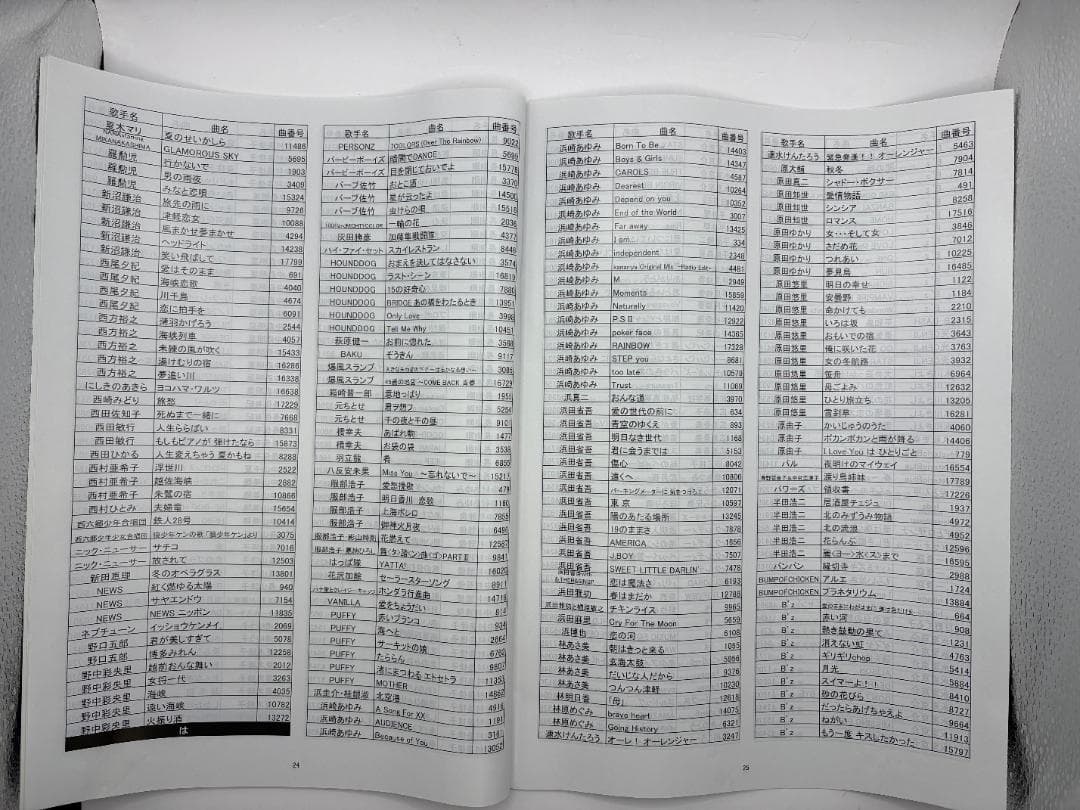 歌手名 曲名 曲番号
夏木マリ 夏のせいかしら 11486
GLAMOROUS SKY 5695
羅勲児 行かないで 1903
羅勲児 男の雨夜 3409
羅勲児 みなと恋唄 15324
新沼謙治 旅先の雨に 9726
新沼謙治 津軽恋女 10088
新沼謙治 馬まかせ夢まかせ 4294
新沼謙治 ヘッドライト 14238
新沼謙治 笑い飛ばして 17789
西尾夕紀 愛はそのまま 691
西尾夕紀 海峡恋歌 4040
西尾夕紀 川千鳥 4674
西尾夕紀 恋に拍手を 6091
西方裕之 薄羽かげろう 2544
西方裕之 海峡列車 4057
西方裕之 未練の風が吹く 15433
西方裕之 湯けむりの宿 16286
西方裕之 夢追い川 16338
にしきのあきら ヨコハマ・ワルツ 16638
西崎みどり 旅愁 17229
西田佐知子 死ぬまで一緒に 7668
西田敏行 人生ららばい 8331
西田敏行 もしもピアノが 弾けたなら 15873
西田ひかる 人生変えちゃう 夏かもね 8288
西村亜希子 浮世川 2522
西村亜希子 越佐海峡 2882
西村亜希子 朱鷺の宿 10866
西村ひとみ 夫婦竜 15654
西六郷少年合唱団 鉄人28号 10414
西六郷少年少女合唱団 3075
ニック・ニューサー サチコ 7016
ニック・ニューサー 放されて 12503
新田恵理 冬のオペラグラス 13801
NEWS 紅く燃ゆる太陽 940
NEWS サヤエンドウ 7154
NEWS NEWS ニッポン 11835
ネプチューン イッショウケンメイ 2069
野口五郎 君が美しすぎて 5078
野口五郎 博多みれん 12258
野中彩央里 越前おんな舞い 2012
野中彩央里 女将一代 3263
野中彩央里 海峡 4035
野中彩央里 遠い海峡 10782
野中彩央里 火振り酒 13272
は
24
歌手名 曲名 曲番号
PERSONZ 7COLORS (Over The Rainbow) 9022
バービーボーイズ 暗闇でDANCE
バービーボーイズ 目を閉じておいでよ 15778
バーブ佐竹 おとこ酒 3370
バーブ佐竹 星が云ったよ 14500
バーブ佐竹 虫けらの唄 15515
一輪の花 2036
灰田勝彦 加藤隼戦闘隊 4377
ハイ・ファイ・セット スカイレストラン 8446
HOUNDDOG おまえを決してはなさない 3574
HOUNDDOG ラスト・シーン 16819
HOUNDDOG 15の好奇心 7880
HOUNDDOG BRIDGE あの橋をわたるとき 13951
HOUNDDOG Only Love 3998
HOUNDDOG Tell Me Why 10451
萩原健一 お前に惚れた 3588
BAKU ぞうきん 9117
爆風スランプ 3095
爆風スランプ 45歳の地図 ～COME BACK 青春 16729
箱崎晋一郎 意地っぱり
元ちとせ 君ヲ想フ
元ちとせ 千の夜と千の昼
橋幸夫 あばれ駒
橋幸夫 お袋の袋 3538
羽立龍 肴 6850
八反安未果 Miss You ～忘れないで～
服部浩子 愛愁挽歌
服部浩子 明日香川 恋歌
服部浩子 上海ボレロ
服部浩子 御神火月夜
服部浩子・影山時則 花燃えて
PARTⅡ
はっぱ隊 YATTA!
花沢加絵 セーラースターソング 8911
ホンダラ行進曲
VANILLA 愛をちょうだい
PUFFY 赤いブランコ
PUFFY 海へと
PUFFY サーキットの娘
PUFFY たららん
PUFFY 渚にまつわる エトセトラ
PUFFY MOTHER
浜圭介・桂銀淑 北空港
浜崎あゆみ A Song For XX
浜崎あゆみ AUDIENCE
浜崎あゆみ Because of You
歌手名 曲名 曲番号
浜崎あゆみ Born To Be... 14403
浜崎あゆみ Boys & Girls 14347
浜崎あゆみ CAROLS 4587
浜崎あゆみ Dearest 10264
浜崎あゆみ Depend on you 10352
浜崎あゆみ End of the World 3007
浜崎あゆみ Far away 13425
浜崎あゆみ I am... 334
浜崎あゆみ independent 2348
浜崎あゆみ kanariya Original Mix ～Radio Edit～ 4481
浜崎あゆみ M 2949
浜崎あゆみ Moments 15859
浜崎あゆみ Naturally 11420
浜崎あゆみ P.S Ⅱ 12922
浜崎あゆみ poker face 14365
浜崎あゆみ RAINBOW 17328
浜崎あゆみ STEP you 8681
浜崎あゆみ too late 10579
浜崎あゆみ Trust 11069
浜真二 おんな道 3970
浜田省吾 愛の世代の前に 634
浜田省吾 青空のゆくえ 893
浜田省吾 明日なき世代 1168
浜田省吾 君に会うまでは 5150
浜田省吾 傷心 8042
浜田省吾 遠くへ 10806
浜田省吾 パーキングメーターに 気をつけろ! 12071
浜田省吾 東 京 10597
浜田省吾 陽のあたる場所 13245
浜田省吾 19のままさ 7878
浜田省吾 AMERICA 1856
浜田省吾 J.BOY 7507
浜田省吾 SWEET LITTLE DARLIN' 7478
恋は魔法さ 6193
浜田雅功 春はまだか 12786
浜田雅功と槇原敬之 チキンライス 9965
浜田麻里 Cry For The Moon 5659
浜博也 恋の河 6108
林あさ美 朝はきっと来る 1095
林あさ美 玄海太鼓 5956
林あさ美 だいじな人だから 9376
林あさ美 つんつん津軽 10230
林明日香 「母」 12618
林原めぐみ bravo heart 14075
林原めぐみ Going History 6321
速水けんたろう オーレ! オーレンジャー 3247
25
歌手名 曲名 曲番号
速水けんたろう 緊急発進!! オーレンジャー 5463
原大輔 秋冬 7904
原田真二 シャドー・ボクサー 7814
原田知世 愛情物語 491
原田知世 シンシア 8258
原田知世 ロマンス 17516
原田ゆかり 女・・・そして女 3846
原田ゆかり さだめ花 7012
原田ゆかり つれあい 10225
原田ゆかり 夢見鳥 16485
原田悠里 明日の幸せ 1122
原田悠里 安曇野 1184
原田悠里 命かけても 2210
原田悠里 いろは坂 2315
原田悠里 おもいでの宿 3643
原田悠里 俺に咲いた花 3763
原田悠里 女の冬航路 3932
原田悠里 笹舟 6964
原田悠里 母ごよみ 12632
原田悠里 ひとり旅立ち 13205
原田悠里 雪割草 16281
原由子 かいじゅうのうた 4060
原由子 ポカンポカンと雨が降る 14406
原由子 I Love Youは ひとりごと 779
バル 夜明けのマイウェイ 16554
渡り鳥姉妹 17789
パワーズ 領収書 17226
半田浩二 居酒屋チェジュ 1937
半田浩二 北のみずうみ物語 4972
半田浩二 北の流浪 4952
半田浩二 花らんぷ 12596
半田浩二 16595
バンバン 縁切寺 2988
BUMPOFCHICKEN アルエ 1724
BUMPOFCHICKEN プラネタリウム 13884
B'z 664
B'z 赤い河 908
B'z 熱き鼓動の果て 1231
B'z 消えない虹 4763
B'z ギリギリchop 5414
B'z 月光 5884
B'z スイマーよ!! 8410
B'z 砂の花びら 8727
B'z だったらあげちゃえよ 9664
B'z ねがい 11913
B'z もう一度 キスしたかった 15797